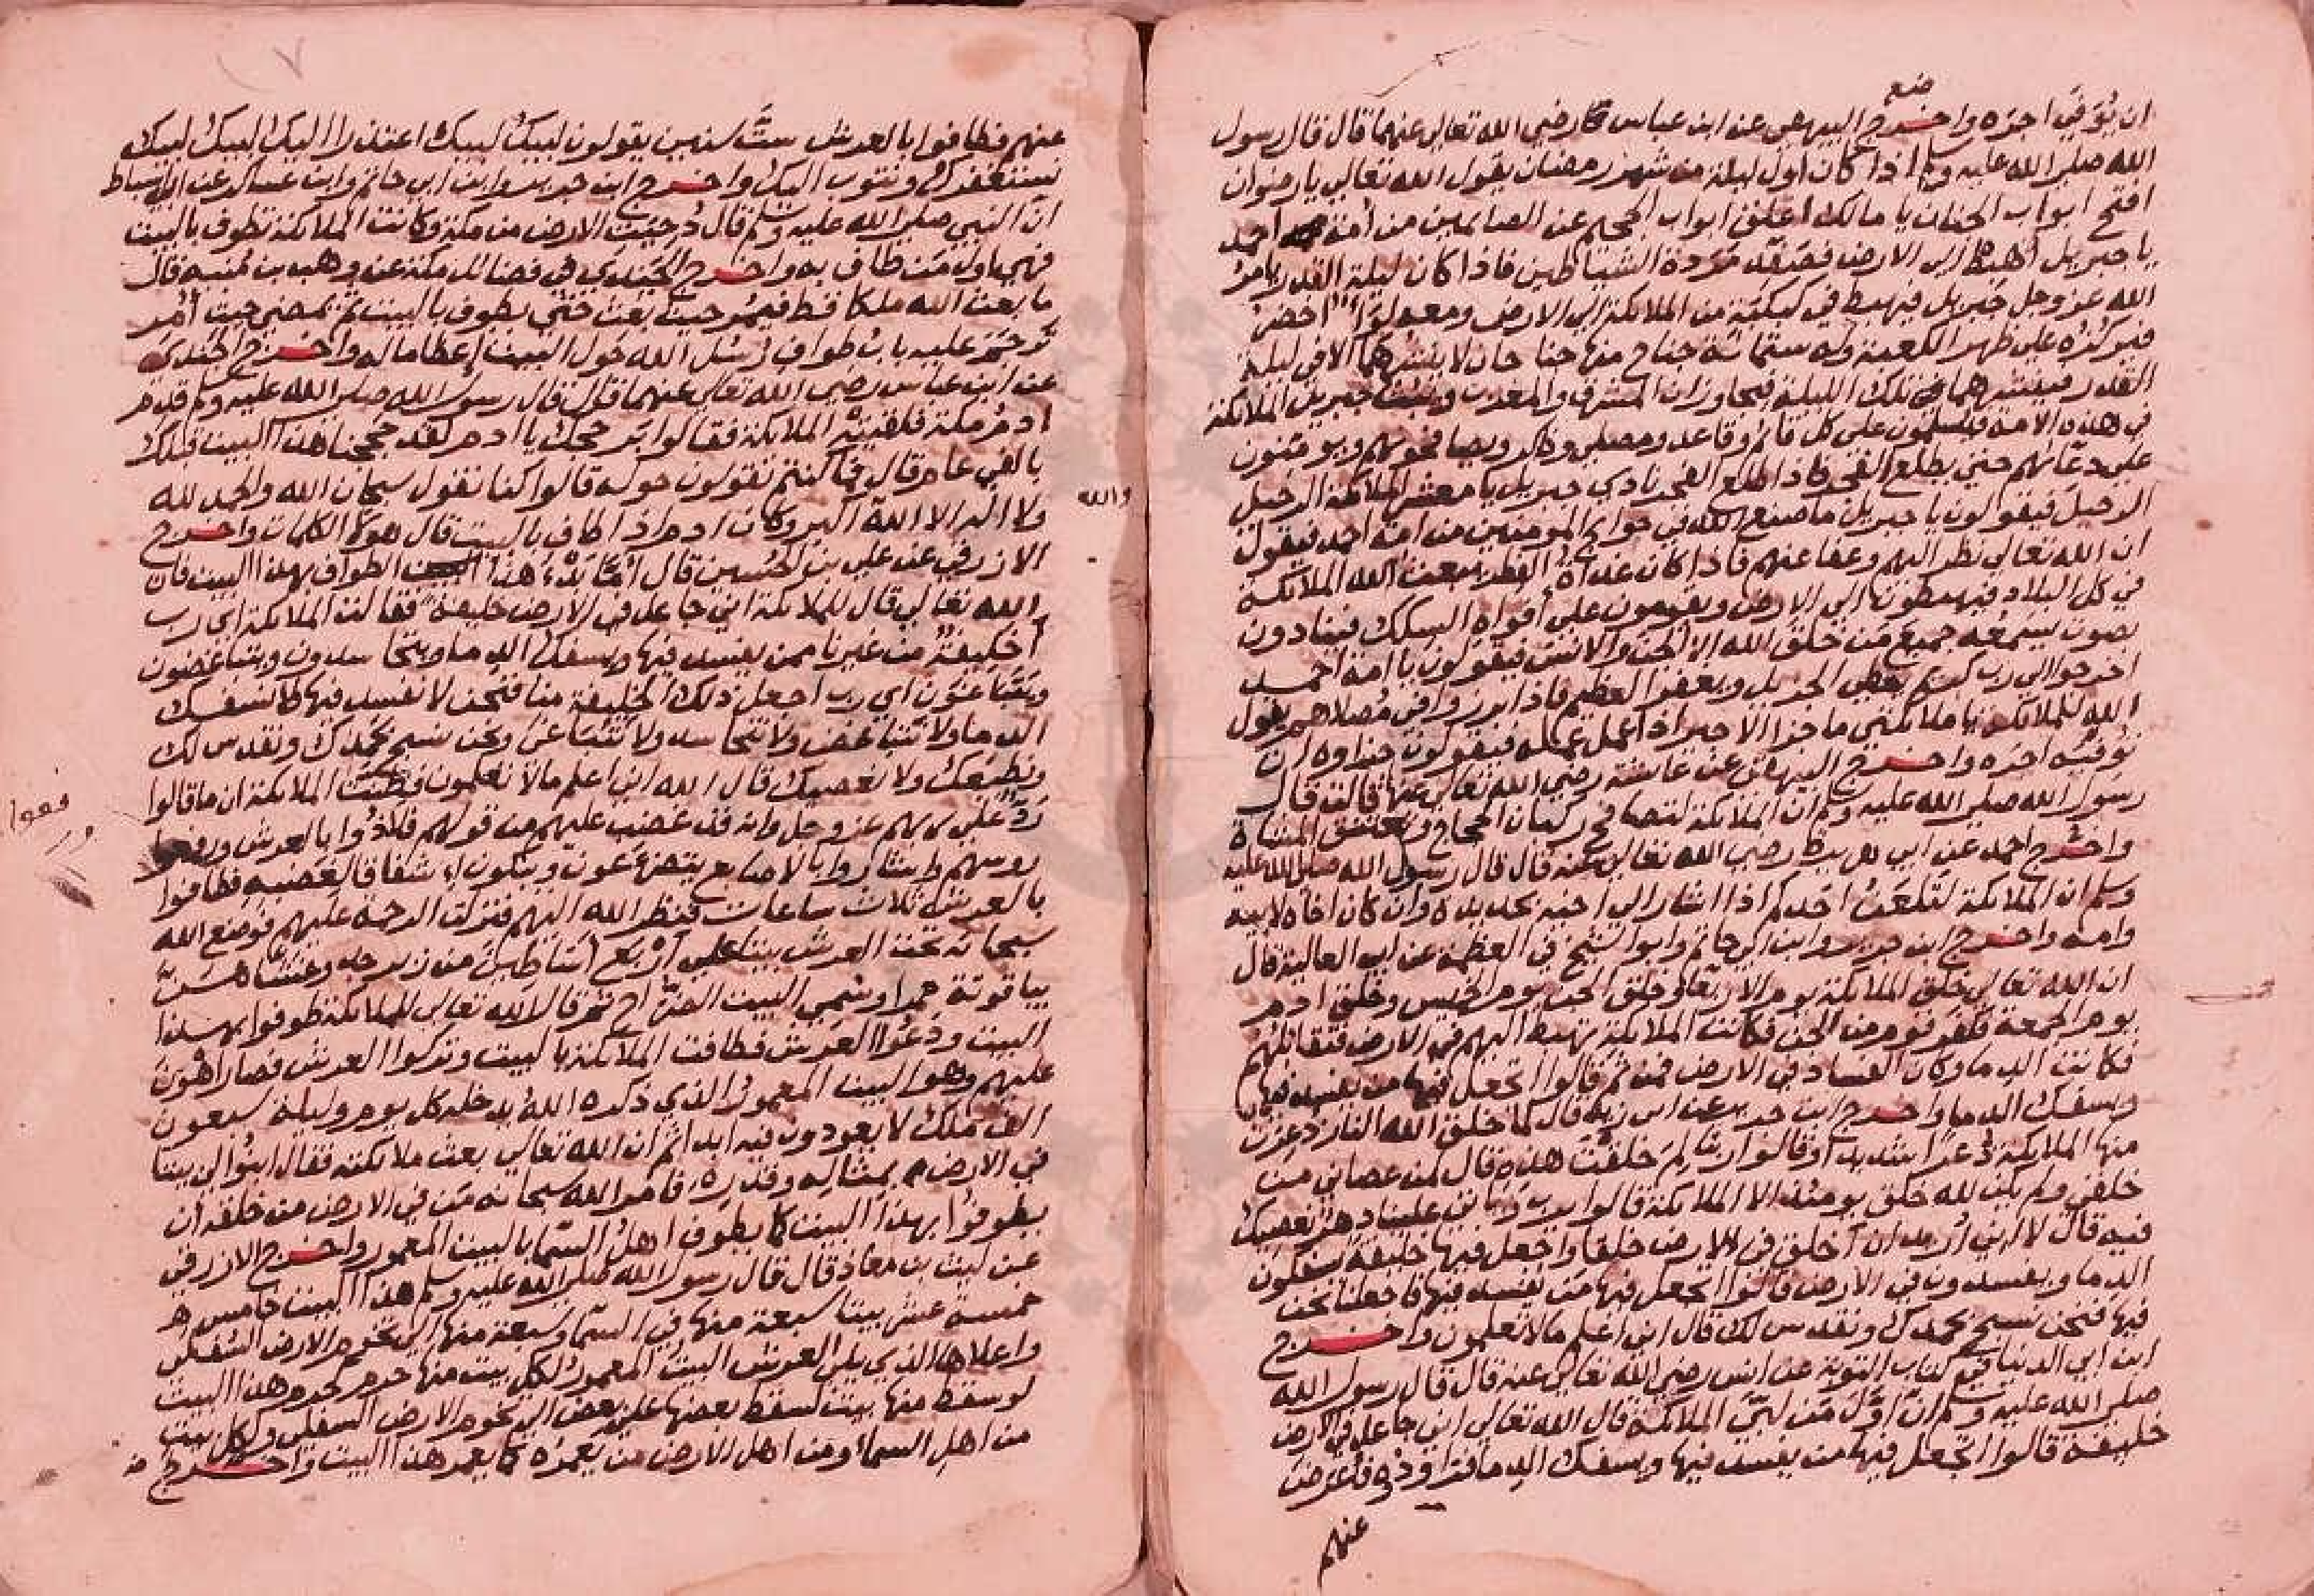 ضع
ان يُوَفَّى اجره واخرج البيهقي عن ابن عباس رضي الله تعالى عنهما قال قال رسول
الله صلى الله عليه وسلم اذا كان اول ليلة من شهر رمضان يقول الله تعالى يا رضوان
افتح ابواب الجنان يا مالك اغلق ابواب الجحيم عن الصائمين من أمة احمد
يا جبريل اهبط الى الارض فصفّد مَرَدة الشياطين فاذا كان ليلة القدر يامرُ
الله عز وجل جبريل فيهبط في كبكبة من الملائكة الى الارض ومعه لواء اخضر
فيركزه على ظهر الكعبة وله ستمائة جناح منها جناحان لا ينشرهما الا في ليلة
القدر فينشرهما في تلك الليلة فيجاوزان المشرق والمغرب ويبث جبريل الملائكة
في هذه الامة فيسلمون على كل قائم وقاعد ومصلي وذاكر ويصافحونهم ويومّنون
على دعائهم حتى يطلع الفجر فاذا طلع الفجر نادى جبريل يا معشر الملائكة الرحيل
الرحيل فيقولون يا جبريل ما صنع الله في حوائج المومنين من امة احمد فيقول
ان الله تعالى نظر اليهم وعفا عنهم فاذا كان غداة الفطر يبعث الله الملائكة
في كل البلاد فيهبطون الى الارض ويقومون على أفواه السكك فينادون
بصوت يسمعه جميع من خلق الله الا الجن والانس فيقولون يا امة احمد
اخرجوا الى رب كريم يعطي الجزيل ويغفر العظيم فاذا برزوا في مُصلاهم يقول
الله للملائكة يا ملائكتي ما جزا الاجير اذا عمل عمله فيقولون جزاوه ان
تُوفيَه اجره واخرج البيهقي عن عائشة رضي الله تعالى عنها قالت قال
رسول الله صلى الله عليه وسلم ان الملائكة لتصافح ركبان الحجاج وتعتنق المشاة
واخرج احمد عن ابي هريرة رضي الله تعالى عنه قال قال رسول الله صلى الله عليه
وسلم ان الملائكة لتلعَنُ احدكم اذا اشار الى اخيه بحديدة وان كان اخاه لابيه
وامه واخرج ابن جرير وابن ابي حاتم وابو الشيخ في العظمة عن ابي العالية قال
ان الله تعالى خلق الملائكة يوم الاربعاء وخلق الجن يوم الخميس وخلق ادم
يوم الجمعة فكفر قوم من الجن فكانت الملائكة تهبط اليهم في الارض فتقاتلهم
فكانت الدما وكان الفساد في الارض فمن ثم قالوا اتجعل فيها من يفسد فيها
ويسفك الدما واخرج ابن جرير عن ابن زيد قال لما خلق الله النار ذعرت
منها الملائكة ذُعرًا شديدا وقالوا ربنا لِمَ خلقتَ هذه قال لمن عصاني من
خلقي ولم يكن لله خلق يومئذ الا الملائكة قالوا يا رب وياتي علينا دهر نعصيك
فيه قال لا اني أريد ان أخلق في الارض خلقا واجعل فيها خليفة يسفكون
الدما ويفسدون في الارض قالوا اتجعل فيها مَن يفسد فيها فاجعلنا نحن
فيها فنحن نسبح بحمدك ونقدس لك قال اني اعلم ما لا تعلمون واخرج
ابن ابي الدنيا في كتاب التوبة عن انس رضي الله تعالى عنه قال قال رسول الله
صلى الله عليه وسلم انّ اوّلَ مَن لبّى الملائكة قال الله تعالى اني جاعل في الارض
خليفة قالوا اتجعل فيها من يفسد فيها ويسفك الدما فزاودوه فاعرض
عنهم
٧
عنهم فطافوا بالعرش ستَّ سنين يقولون لبيك لبيك اعتذارا اليك لبيك لبيك
نستغفرك ونتوب اليك واخرج ابن جرير وابن ابي حاتم وابن عساكر عن ابن سباط
ان النبي صلى الله عليه وسلم قال دُحيت الارض من مكة وكانت الملائكة تطوف بالبيت
فهي اول مَن طاف به واخرج الجَندي في فضائل مكة عن وهب بن مُنبه قال
ما بعث الله ملكا قط فيمُر حيث بعث حتى يطوف بالبيت ثم يمضي حيث أُمر
تَرجَمَ عليه باب طواف رُسُل الله حول البيت اعظاما له واخرج الجندي
عن ابن عباس رضي الله تعالى عنهما قال قال رسول الله صلى الله عليه وسلم قدم
ادمُ مكة فلقيته الملائكة فقالوا بر حجك يا ادم لقد حججنا هذا البيت قبلك
بالفي عام قال فما كنتم تقولون حوله قالوا كنا نقول سبحان الله والحمد لله
ولا اله الا الله الله اكبر وكان ادم اذا طاف بالبيت قال هولاء الكلمات واخرج
والله
الازرقي عن علي بن الحسين قال أمّا بَدْء هذا الطواف بهذا البيت فان
الله تعالى قال للملائكة اني جاعل في الارض خليفة فقالت الملائكة اي رب
أخليفةٌ من غيرنا ممن يفسد فيها ويسفك الدما ويتحاسدون ويتباغضون
ويتباغَون اي رب اجعل ذلك الخليفة منا فنحن لا نفسد فيها ولا نسفك
الدما ولا نتباغض ولا نتحاسد ولا نتباغى ونحن نسبح بحمدك ونقدس لك
ونطيعك ولا نعصيك قال الله اني اعلم ما لا تعلمون فظنت الملائكة ان ما قالوا
رَدٌّ على ربهم عز وجل وانه قد غضب عليهم من قولهم فلاذُوا بالعرش ورفعوا
فعوا
رؤسهم واشاروا بالاصابع يتضرعون ويبكون اشفاقا لغضبه فطافوا
بالعرش ثلاث ساعات فنظر الله اليهم فنزلت الرحمة عليهم فوضع الله
سبحانه تحت العرش بيتا على أربع أساطين من زبرجد وغشاهن
بياقوتة حمرا وسُمي البيت الضراح ثم قال الله تعالى للملائكة طوفوا بهذا
البيت ودَعُوا العرش فطافت الملائكة بالبيت وتركوا العرش فصار أهون
عليهم وهو البيت المعمور الذي ذكره الله يدخله كل يوم وليلة سبعون
الف ملك لا يعودون فيه ابدا ثم ان الله تعالى بعث ملائكته فقال ابنُوا لي بيتا
في الارض بمثاله وقَدْره فامر الله سبحانه مَن في الارض من خلقه ان
يطوفوا بهذا البيت كما يطوف اهل السما بالبيت المعمور واخرج الازرقي
عن ليث بن معاذ قال قال رسول الله صلى الله عليه وسلم هذا البيت خامس
خمسة عشر بيتا سبعة منها في السما وسبعة منها الى تخوم الارض السفلى
واعلاها الذي يلي العرش البيت المعمور لكل بيت منها حرم كحرم هذا البيت
لو سقط منها بيت لسقط بعضها على بعض الى تخوم الارض السفلى ولكل بيت
من اهل السما ومن اهل الارض من يعمره كما يعمر هذا البيت واخرج